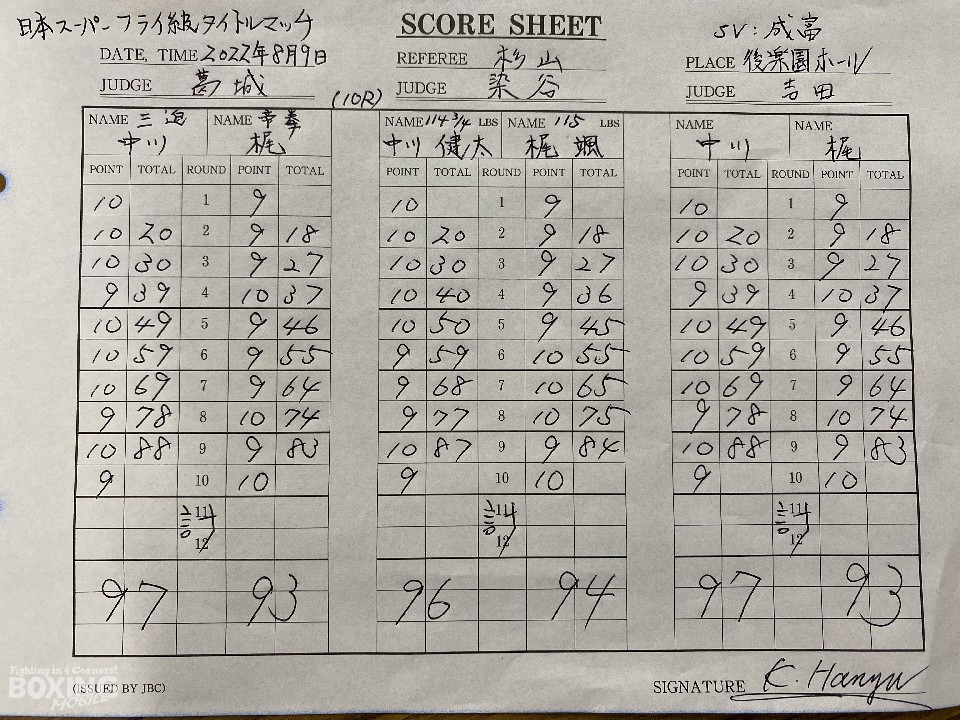 日本スーパーフライ級タイトルマッチ
SCORE SHEET
SV:成富
DATE, TIME 2022年8月9日
REFEREE 杉山
PLACE 後楽園ホール
JUDGE 葛城
(10R)
JUDGE 染谷
JUDGE 吉田
NAME 三迫 NAME 帝拳 NAME 114 3/4 LBS NAME 115 LBS NAME NAME
中川 梶 中川 健太 梶 颯 中川 梶
POINT TOTAL ROUND POINT TOTAL POINT TOTAL ROUND POINT TOTAL POINT TOTAL ROUND POINT TOTAL
10 1 9 10 1 9 10 1 9
10 20 2 9 18 10 20 2 9 18 10 20 2 9 18
10 30 3 9 27 10 30 3 9 27 10 30 3 9 27
9 39 4 10 37 10 40 4 9 36 9 39 4 10 37
10 49 5 9 46 10 50 5 9 45 10 49 5 9 46
10 59 6 9 55 9 59 6 10 55 10 59 6 9 55
10 69 7 9 64 9 68 7 10 65 10 69 7 9 64
9 78 8 10 74 9 77 8 10 75 9 78 8 10 74
10 88 9 9 83 10 87 9 9 84 10 88 9 9 83
9 10 10 9 10 10 9 10 10
11 11 11
12 12 12
97 93 96 94 97 93
Fighting in 4 Corners!
BOXING
MOBILE
(ISSUED BY JBC)
SIGNATURE K. Hanyu